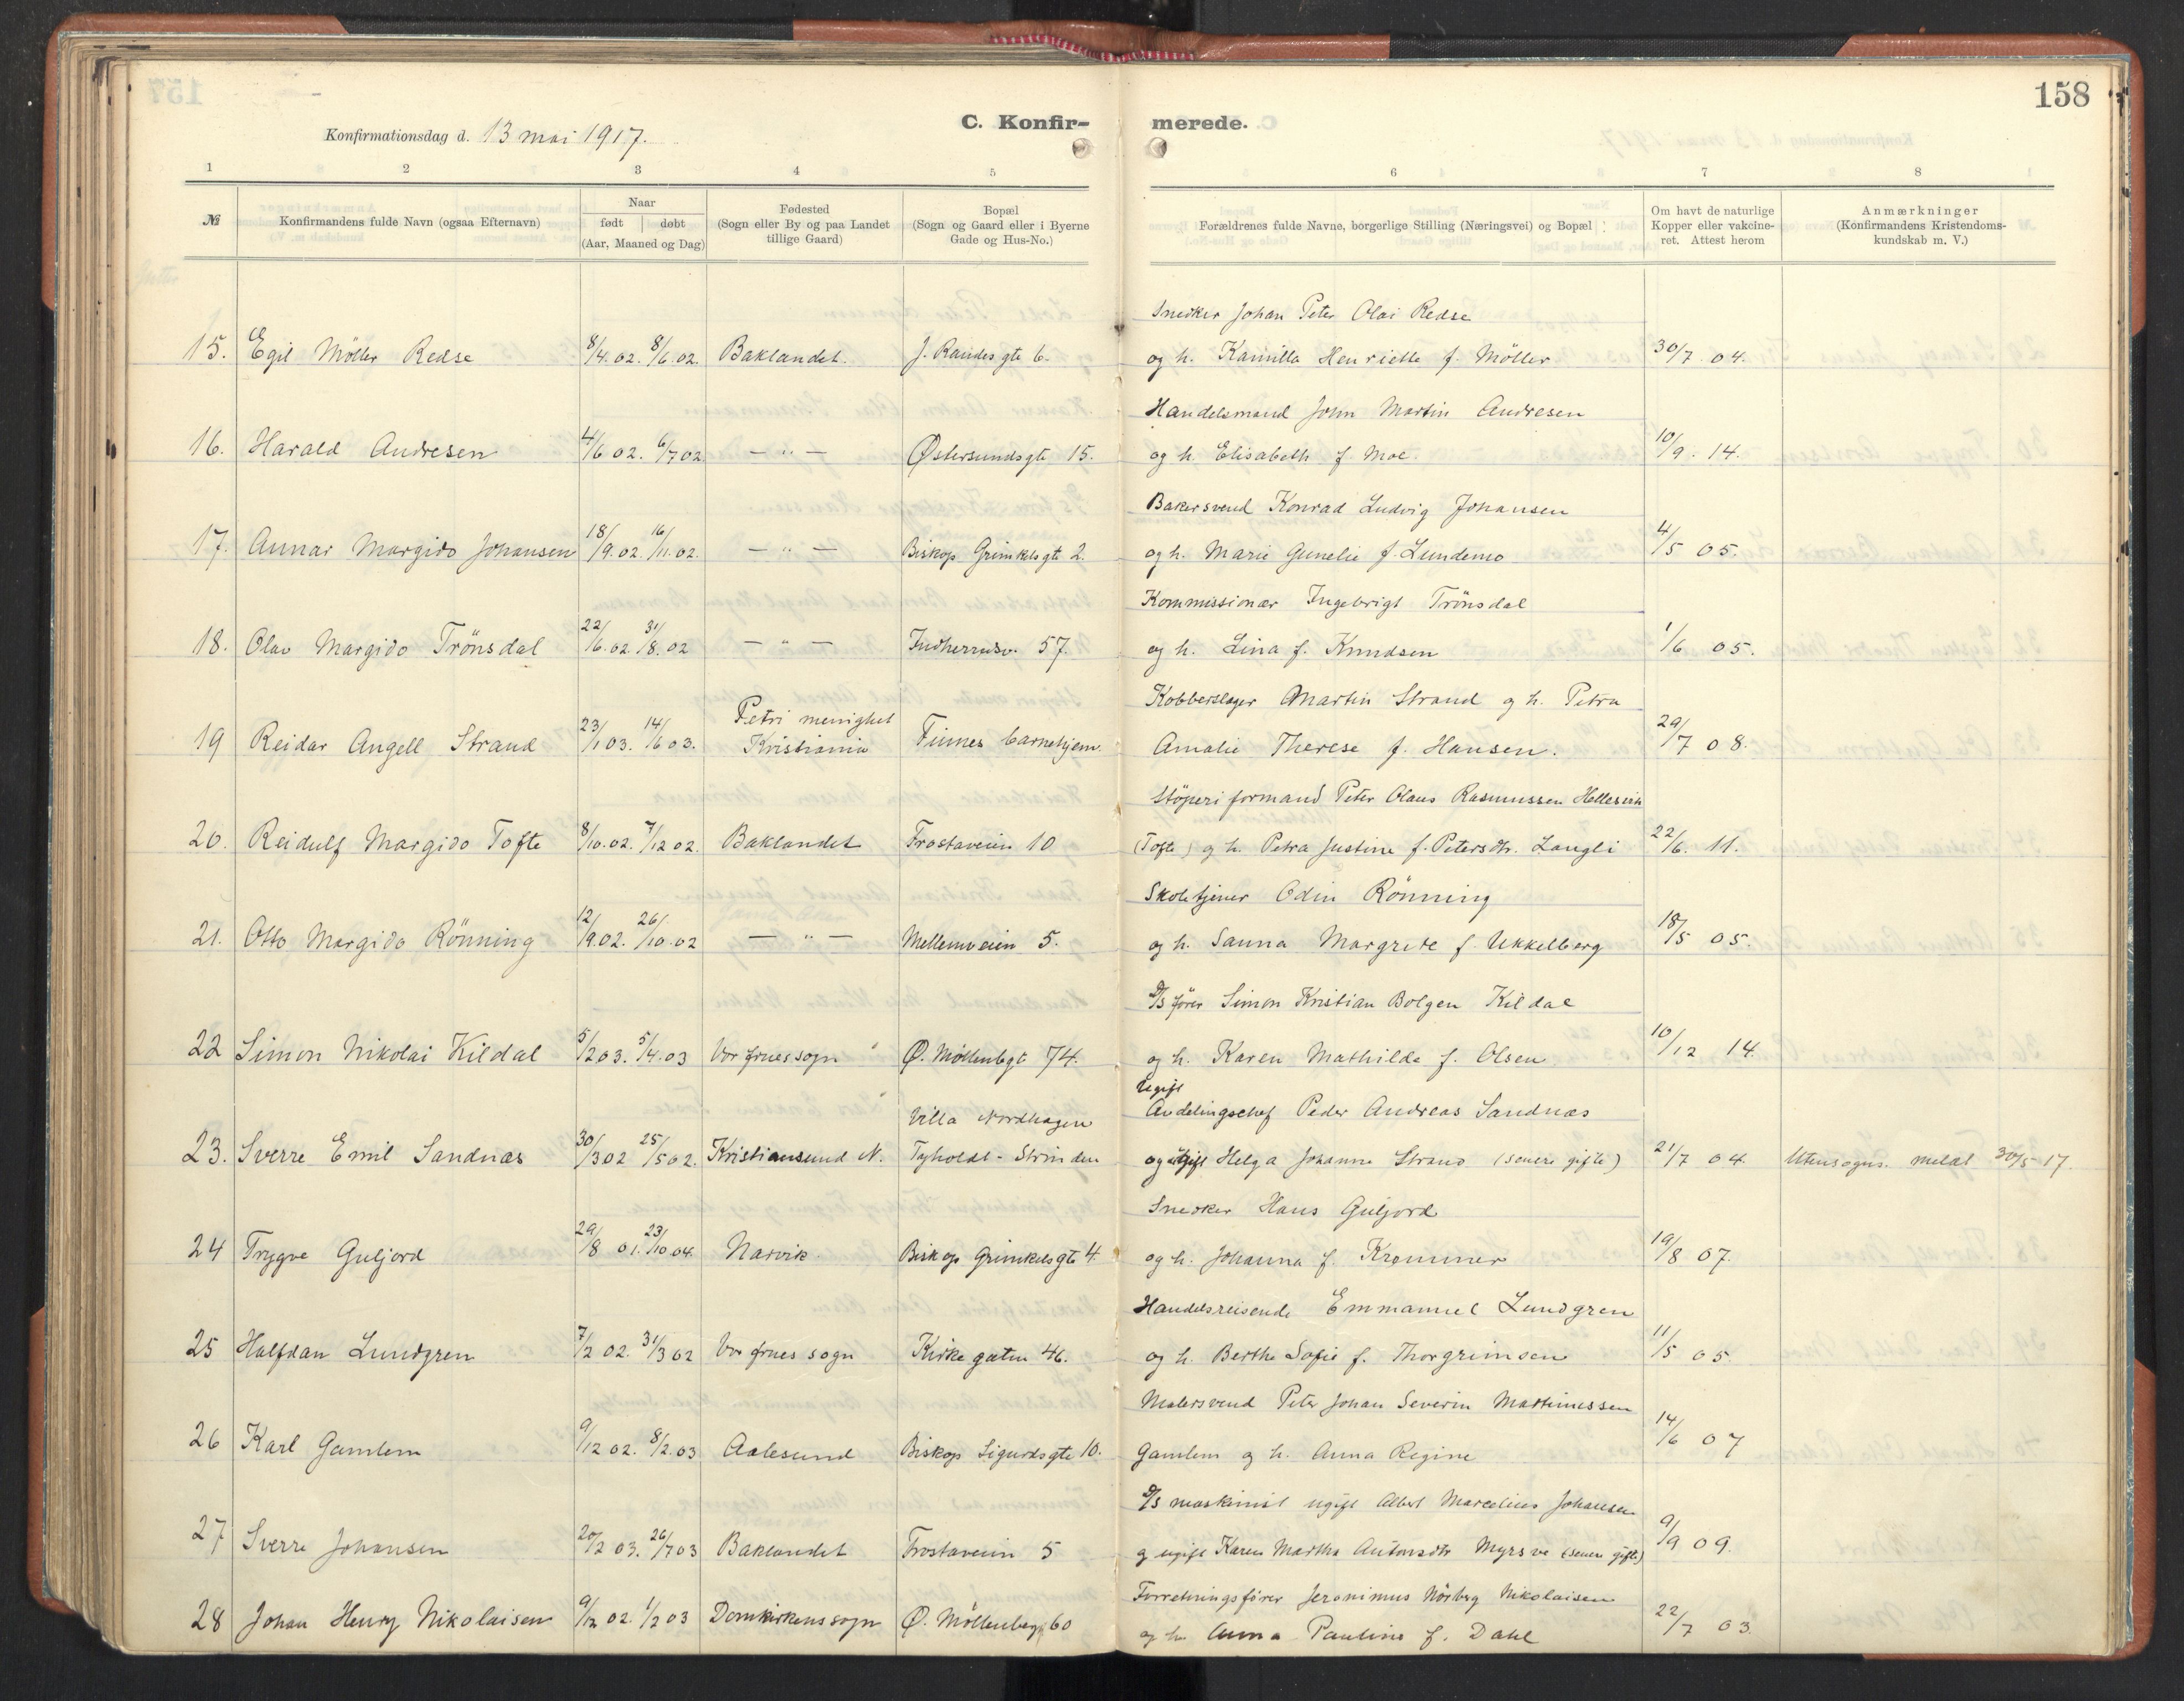 158
Konfirmationsdag d. 13 mai 1917.
C. Konfir-
merede.
1 2 3 4 5 6 7 8
№
Konfirmandens fulde Navn (ogsaa Efternavn)
Naar
født døbt
(Aar, Maaned og Dag)
Fødested
(Sogn eller By og paa Landet
tillige Gaard)
Bopæl
(Sogn og Gaard eller i Byerne
Gade og Hus-No.)
Forældrenes fulde Navne, borgerlige Stilling (Næringsvei) og Bopæl
Om havt de naturlige
Kopper eller vakcine-
ret. Attest herom
Anmærkninger
(Konfirmandens Kristendoms-
kundskab m. V.)
Snedker Johan Peter Olai Redse
15. Egil Möller Redse 8/4.02. 8/6.02. Baklandet. J. Randes gte 6. og h. Kamilla Henriette f. Möller 30/7 04.
Handelsmand John Martin Andresen
16. Harald Andresen 4/6 02. 6/7 02. — " — Østersundsgt 15. og h. Elisabeth f. Moe. 10/9. 14.
Bakersvend Konrad Ludvig Johansen
17. Annar Margido Johansen 18/9.02. 16/11.02. — " — Biskop Grimkelsgt 2. og h. Marie Gunelie f. Lundemo 4/5 05.
Kommissionær Ingebrigt Trönsdal
18. Olav Margido Trönsdal 22/6.02. 31/8.02 — " — Indherredsv. 57. og h. Lina f. Knudsen 1/6 05.
Kobberslager Martin Strand og h. Petra
Petri menighet
19 Reidar Angell Strand 23/1 03. 14/6 03. Kristiania Finnes barnehjem. Amalie Therese f. Hansen. 29/7 08.
Stöperiformand Peter Olaus Rasmussen Hellesvik
20. Reidulf Margido Tofte 8/10.02. 7/12 02. Baklandet Frostaveien 10 (Tofte) og h. Petra Justine f. Petersdtr. Langli 22/6. 11.
Skoletjener Odin Rönning
21. Otto Margido Rönning 12/9.02. 26/10.02 — " — Mellemveien 5. og h. Sanna Margrete f. Ukkelberg 18/5 05.
D/S fører Simon Kristian Bolgen Kildal
22 Simon Nikolai Kildal 5/2 03. 5/4.03 Vor frues sogn Ø. Möllenbgt 74. og h. Karen Mathilde f. Olsen 10/12 14.
Ugift
Villa Nordhagen Avdelingschef Peder Andreas Sandnæs
23. Sverre Emil Sandnæs 30/3 02 25/5 02. Kristiansund N. Tyholdt - Strinden og ugift Helga Johanne Strand (senere gifte) 21/7 04. Utensogns. meldt 30/5 17.
Snedker Hans Guljord
24 Trygve Guljord 29/8 01. 23/10 04. Narvik. Biskop Grimkelsgt 4. og h. Johanna f. Krommer 19/8 07.
Handelsreisende Emmanuel Lundgren
25 Halfdan Lundgren 7/2 02. 31/3 02 Vor frues sogn Kirkegaten 46. og h. Berthe Sofie f. Thorgrimsen 11/5 05.
Malersvend Peter Johan Severin Martinussen
26 Karl Gamlem 9/12 02. 8/2.03 Aalesund Biskop Sigurdsgte 10. Gamlem og h. Anna Regine 14/6 07
D/S maskinist ugift Albert Marcelius Johansen
27 Sverre Johansen 20/2 03. 26/7 03 Baklandet Frostaveien 5 og ugift Karen Martha Antonsdtr Myrsve (senere gifte) 9/9 09.
Forretningsfører Jeronimus Nörberg Nikolaisen
28 Johan Henry Nikolaisen 9/12 02. 1/2 03 Domkirkens sogn Ø. Möllenbergt 60 og h. Anna Pauline f. Dahl 22/7 03.